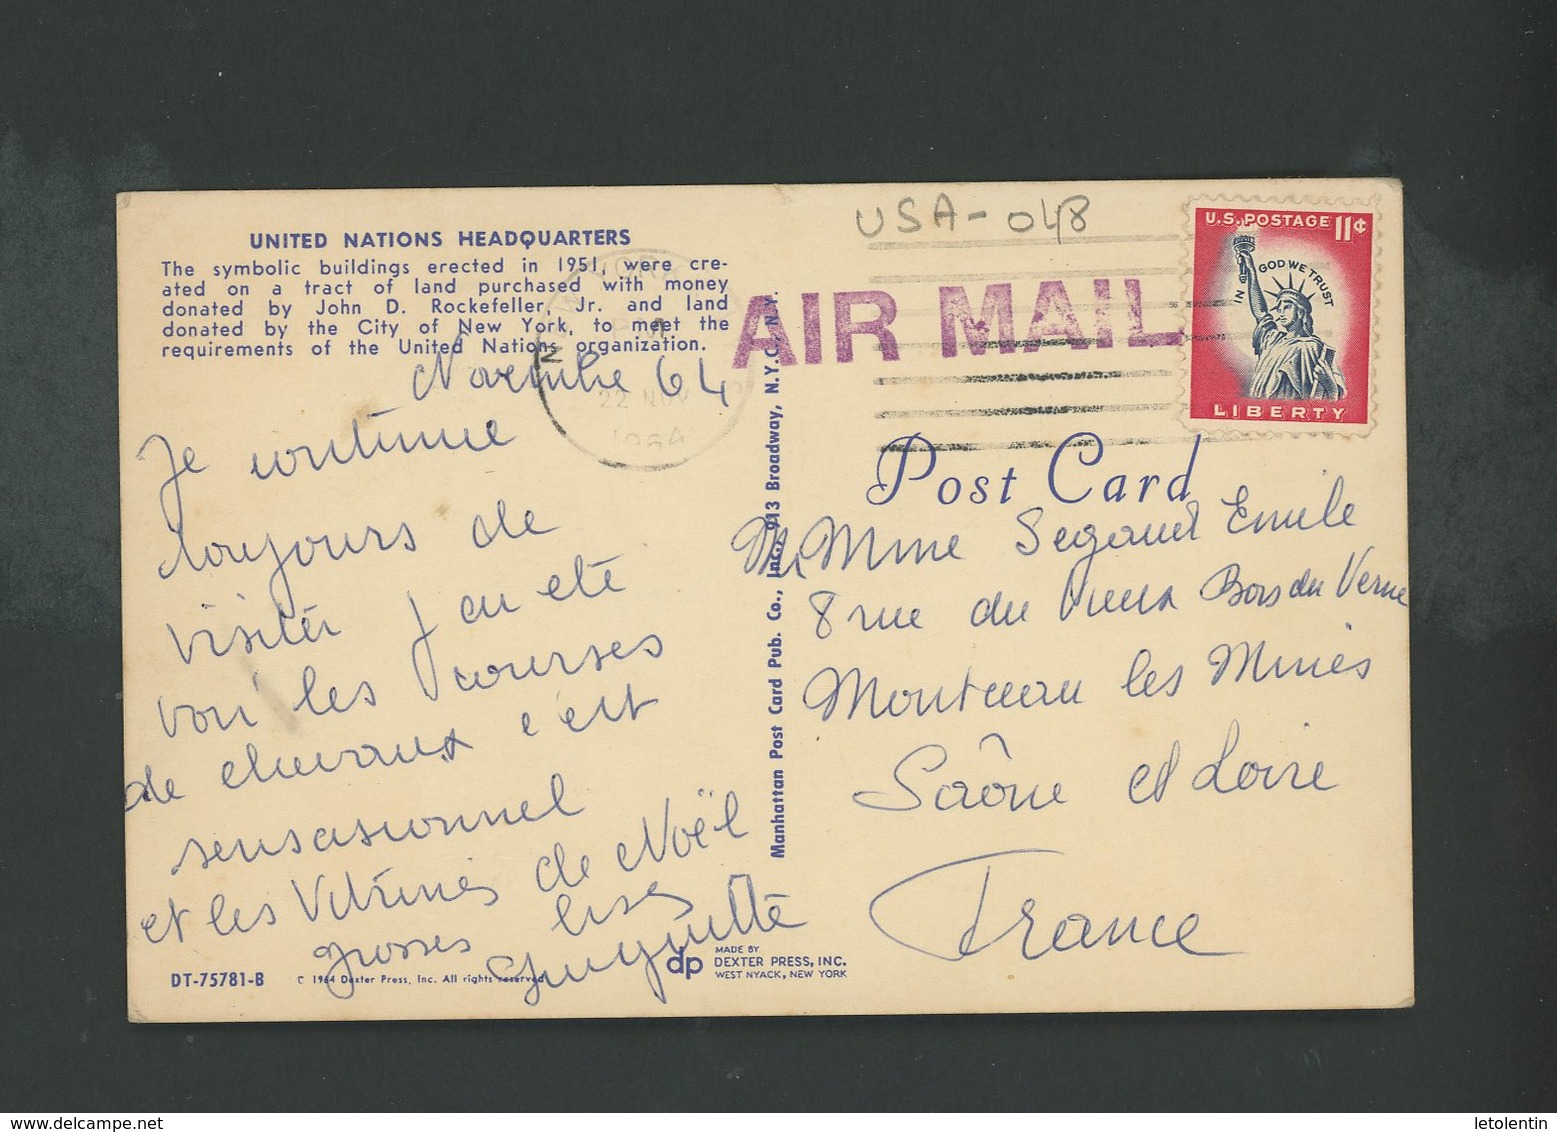 UNITED NATIONS HEADQUARTERS
The symbolic buildings erected in 1951, were cre-
ated on a tract of land purchased with money
donated by John D. Rockefeller, Jr. and land
donated by the City of New York, to meet the
requirements of the United Nations organization.
Novembre 64
Je continue
toujours de
visiter j'ai été
voir les courses
de chevaux c'est
sensasionnel
et les vitrines de Noël
grosses bises
Huguette
DT-75781-B
© 1964 Dexter Press, Inc. All rights reserved
dp
MADE BY
DEXTER PRESS, INC.
WEST NYACK, NEW YORK
Manhattan Post Card Pub. Co., Inc., 913 Broadway, N.Y.C., N.Y.
USA-048
22 NOV
1964
AIR MAIL
U.S. POSTAGE 11¢
IN GOD WE TRUST
LIBERTY
Post Card
M, Mme Segaud Emile
8 rue du Vieux Bois du Verne
Montceau les Mines
Saône et Loire
France
delcampe.net
letolentin